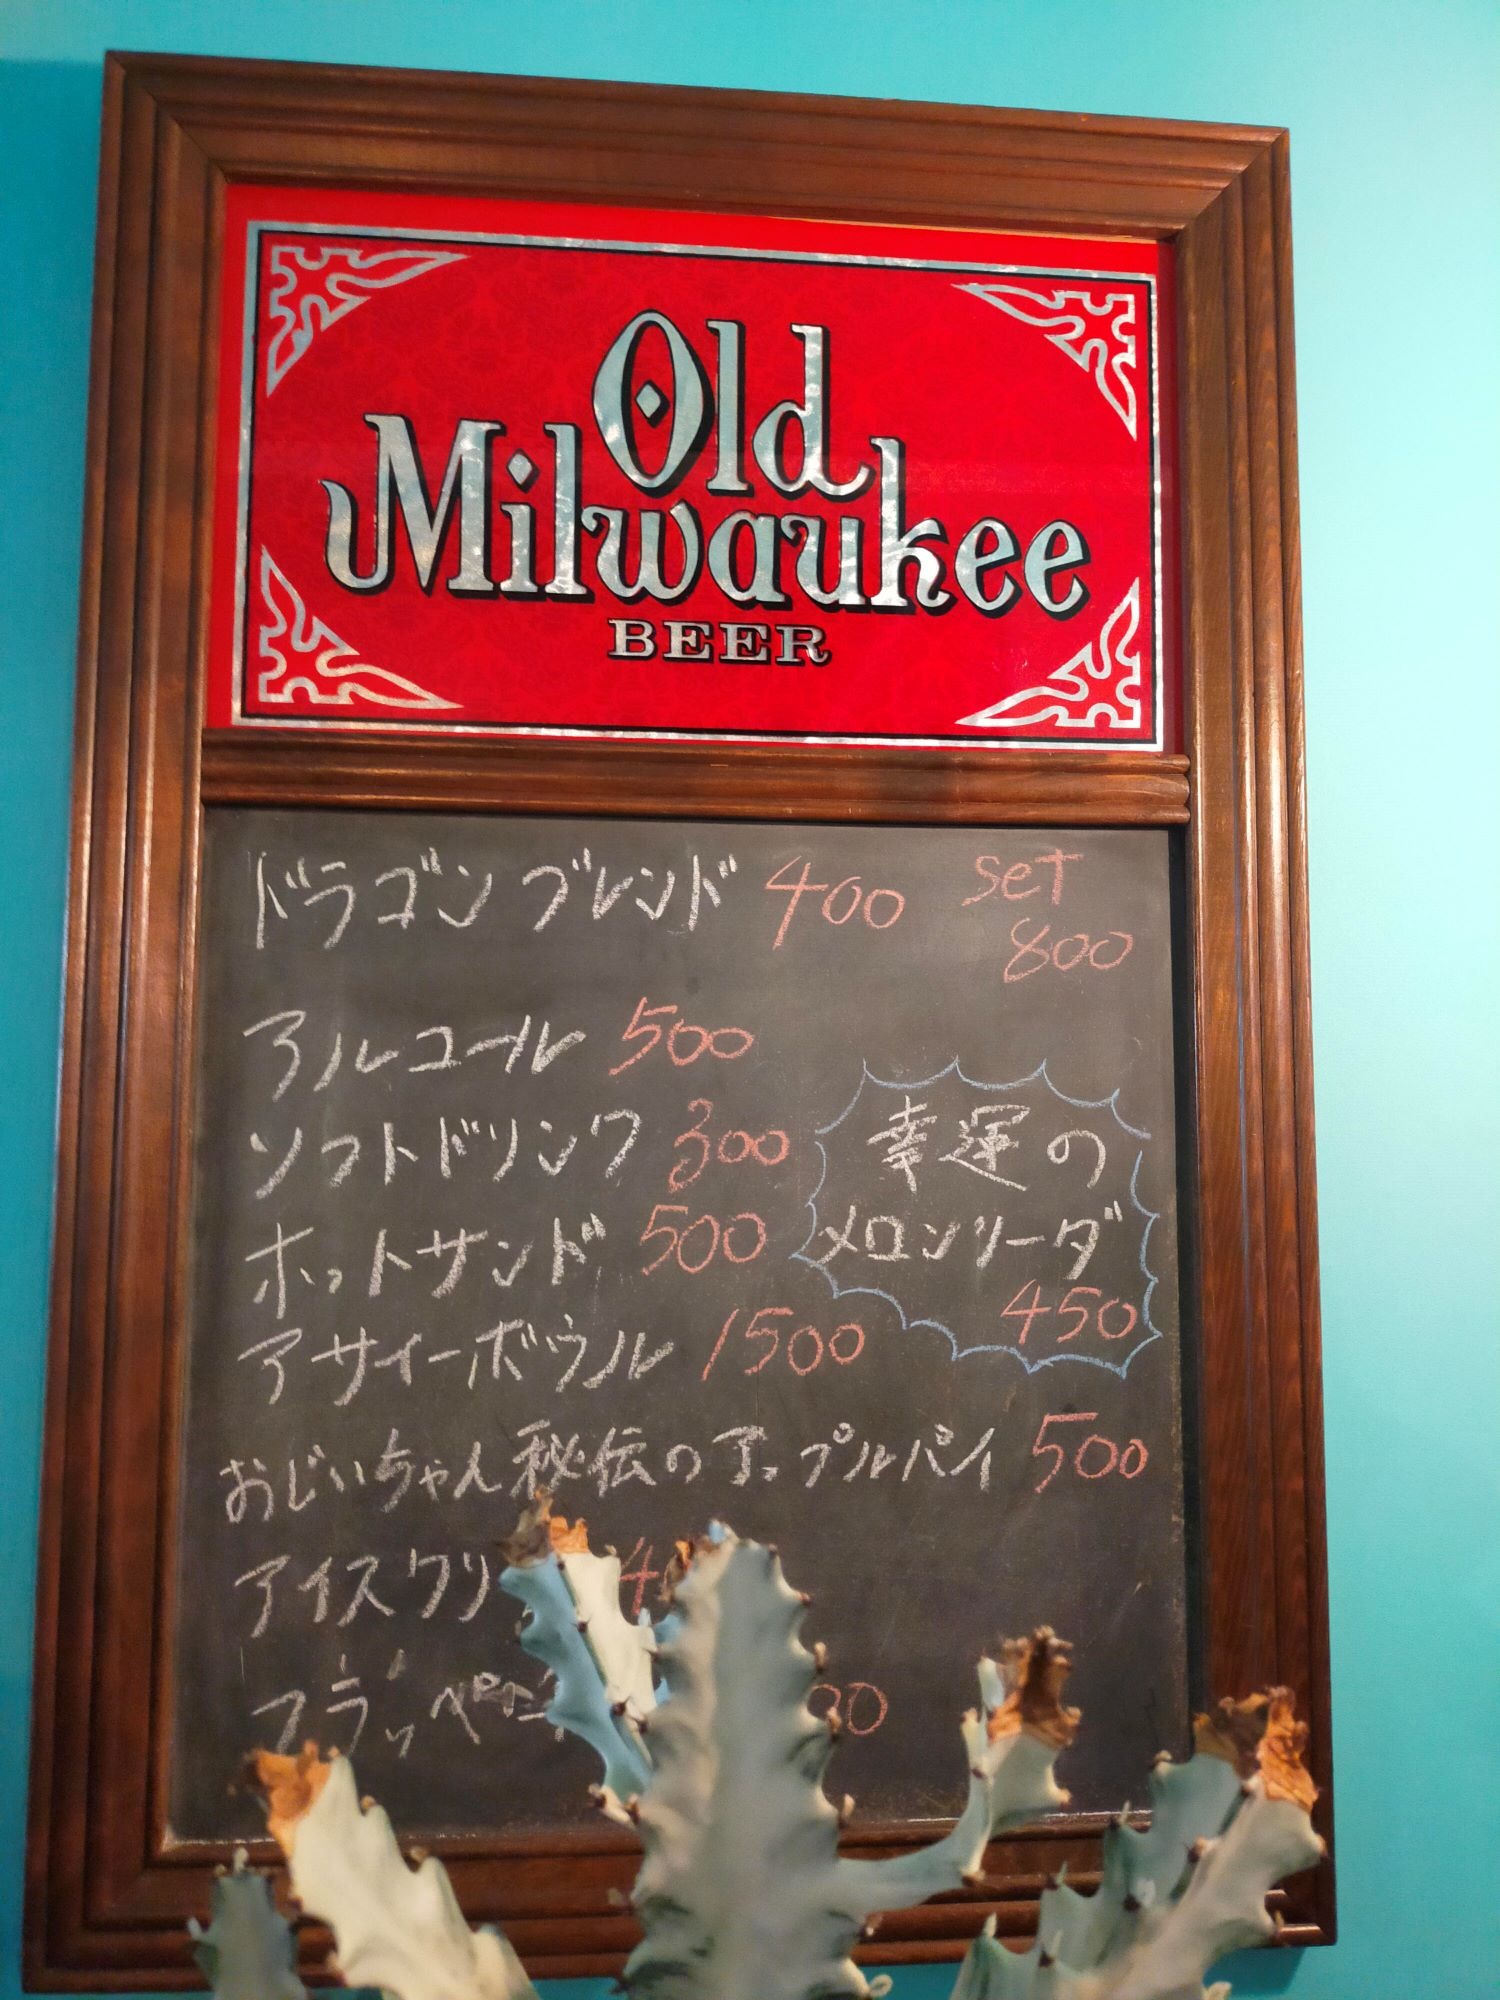 Old
Milwaukee
BEER
ドラゴンブレンド 400 set
800
アルコール 500
ソフトドリンク 300
ホットサンド 500
アサイーボウル 1500
幸運の
メロンソーダ
450
おじいちゃん秘伝のアップルパイ 500
アイスクリ
フラッペ